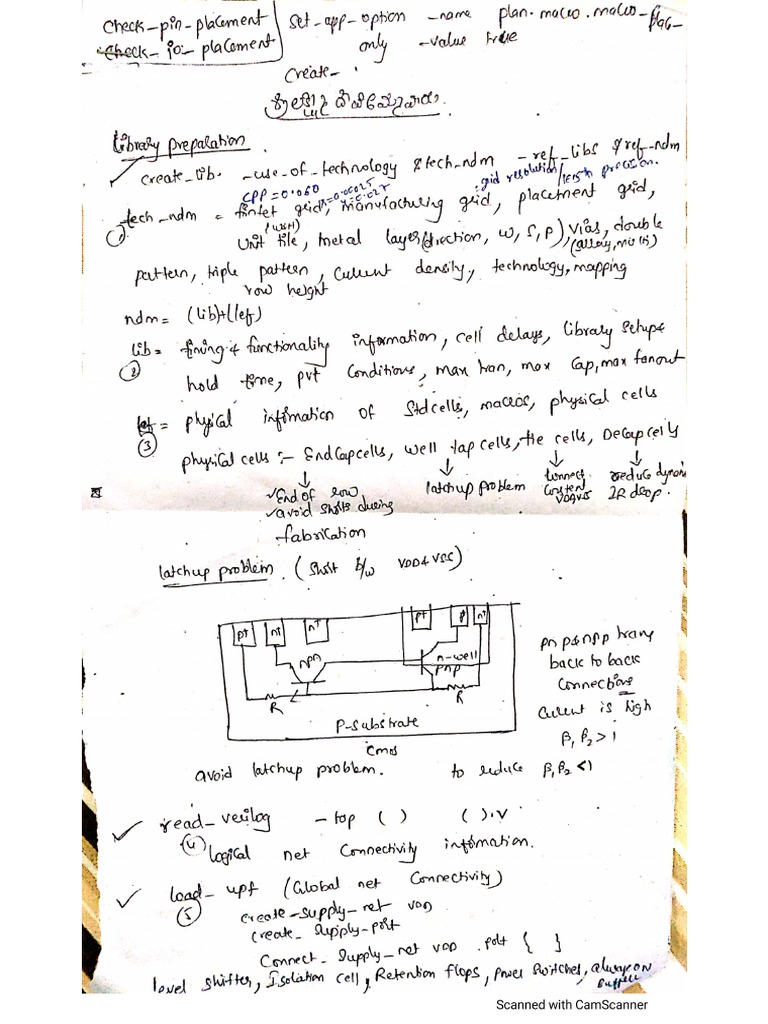 check_pin_placement
check_io_placement
set_app_option -name plan.macro.macro_place_
only -value true
create_
Library preparation
create_lib. -use_of_technology $tech_ndm -ref_libs $ref_ndm
CPP=0.060
grid resolution/length precision.
① tech_ndm = finfet grid, manufacturing grid, placement grid,
(w&H)
unit tile, metal layer(direction, w, s, p), vias, double
(array, multi)
pattern, triple pattern, current density, technology, mapping
row height
ndm = (lib)+(lef)
lib = timing & functionality information, cell delays, library setup &
② hold time, pvt conditions, max tran, max cap, max fanout
lef = physical infirmation of Stdcells, macros, physical cells
③
physical cells :- Endcapcells, well tap cells, tie cells, Decapcells
↓ ↓ ↓ ↓
✓ End of row
✓ avoid shorts during
fabrication
latchup problem
connect
constent
reduce dynami
IR drop.
latchup problem. (short b/w VDD & VSS)
p+ n+ n+ p+ p n+
npn
n-well
pnp
R R
P-substrate
cmos
pnp & npn trans
back to back
connections
current is high
β₁ β₂ > 1
avoid latchup problem. to reduce β₁ β₂ < 1
✓ read_verilog -top ( ) ( ).v
④ logical net connectivity infirmation.
✓ load_upf (Global net connectivity)
⑤ create-supply-net VDD
create_supply-port
connect_supply-net VDD .port { }
level shifter, Isolation cell, Retention flops, power switches, always on
buffers
Scanned with CamScanner